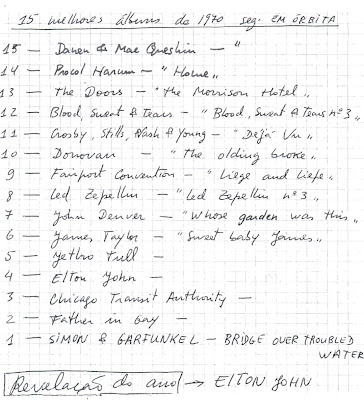 15 melhores álbuns de 1970 seg. EM ÓRBITA
15 — Danen & Mac Queshin — "
14 — Procol Harum — "Home„
13 — The Doors — "the Morrison Hotel„
12 — Blood, Sweat & Tears — "Blood, Sweat & Tears nº 3„
11 — Crosby, Stills, Nash & Young — "Dejá Vu„
10 — Donovan — "The olding broke„
9 — Fairport Convention — "Liege and Liefe„
8 — Led Zepellin — "Led Zepellin nº 3„
7 — John Denver — "Whose garden was this„
6 — James Taylor — "Sweet baby James„
5 — Jethro Tull —
4 — Elton John —
3 — Chicago Transit Authority —
2 — Father in Gay —
1 — SIMON & GARFUNKEL — BRIDGE OVER TROUBLED
WATER
Revelação do ano → ElTON JOHN